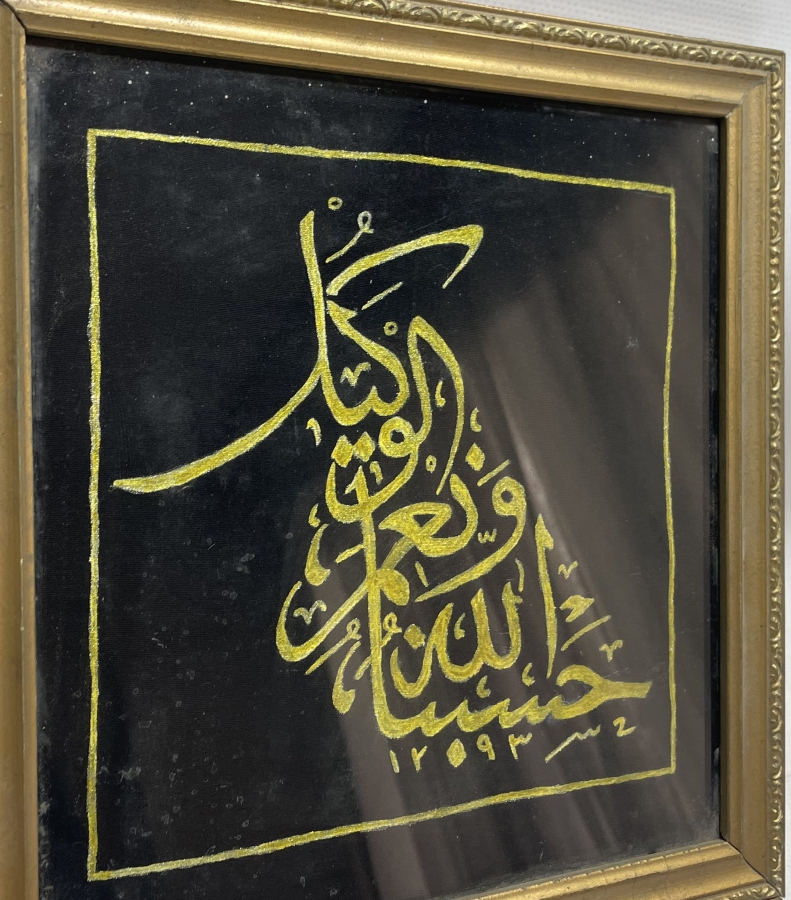 حسبنا الله
ونعم
الوكيل
١٢٩٣